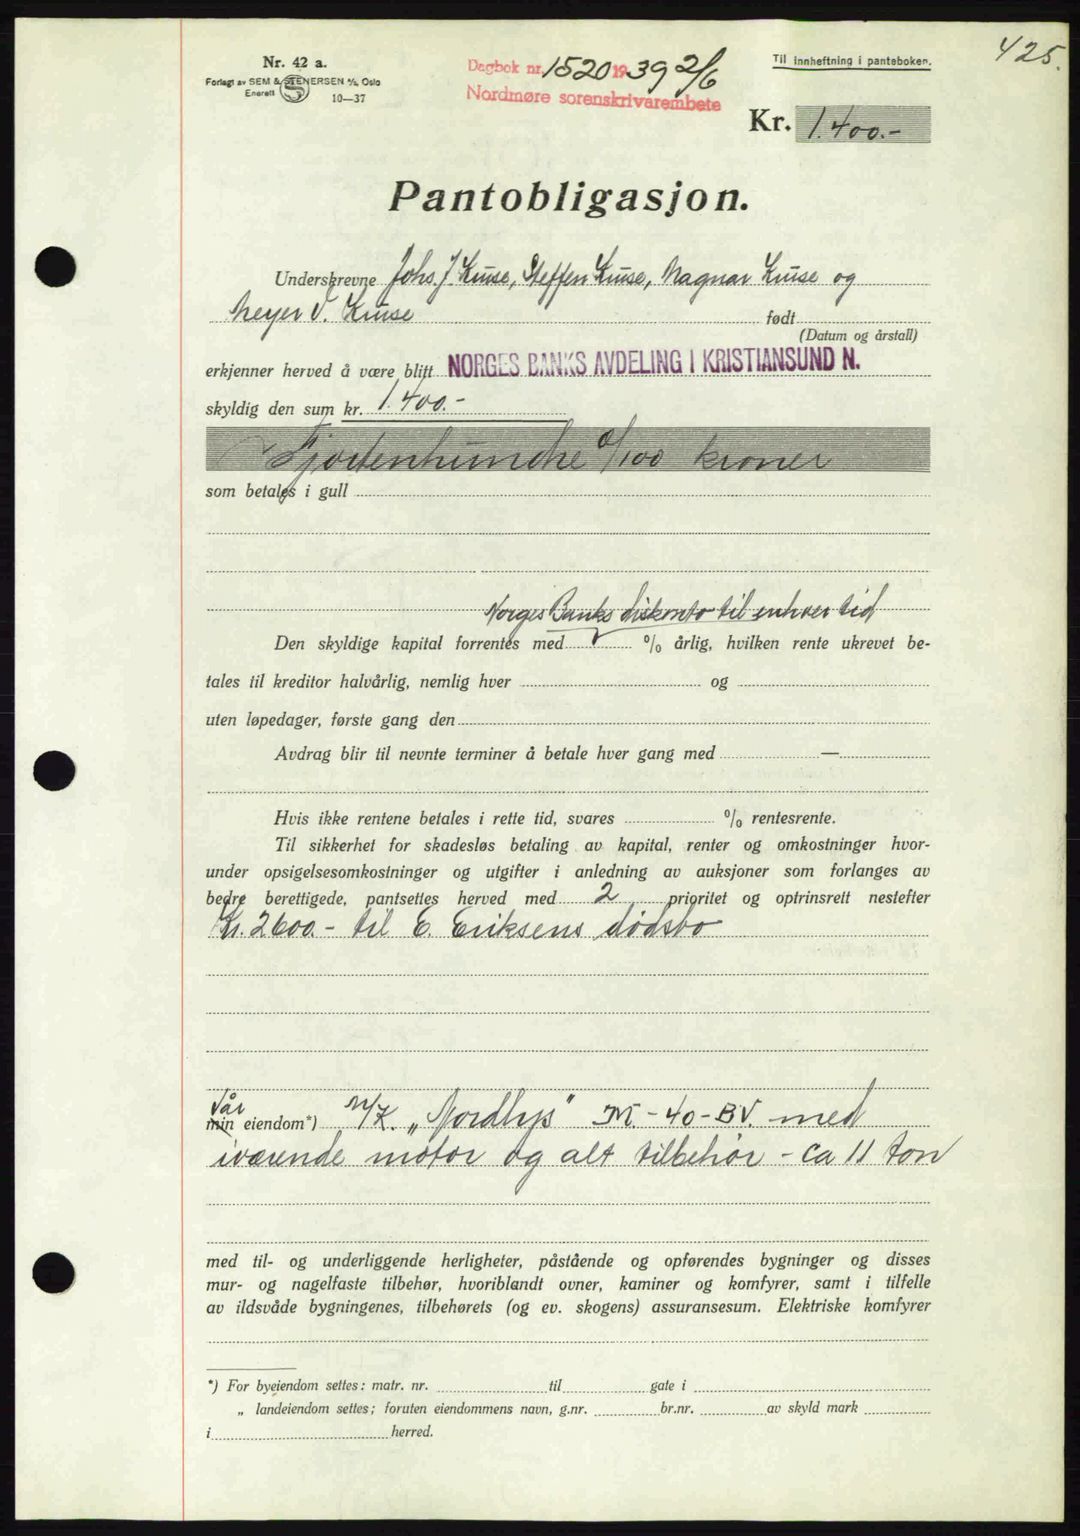 425.
Nr. 42 a.
Forlagt av SEM & STENERSEN A/S, Oslo
Enerett 10—37
Dagbok nr. 1520 1939 2/6
Nordmøre sorenskrivarembete
Til innheftning i panteboken.
Kr. 1.400.-
Pantobligasjon.
Underskrevne Johs. J. Kruse, Steffen Kruse, Magnar Kruse og
Meyer J. Kruse født
(Datum og årstall)
erkjenner herved å være blitt NORGES BANKS AVDELING I KRISTIANSUND N.
skyldig den sum kr. 1.400.-
Fjortenhundre 0/100 kroner
som betales i gull
Norges Banks diskonto til enhver tid
Den skyldige kapital forrentes med % årlig, hvilken rente ukrevet be-
tales til kreditor halvårlig, nemlig hver og
uten løpedager, første gang den
Avdrag blir til nevnte terminer å betale hver gang med —
Hvis ikke rentene betales i rette tid, svares % rentesrente.
Til sikkerhet for skadesløs betaling av kapital, renter og omkostninger hvor-
under opsigelsesomkostninger og utgifter i anledning av auksjoner som forlanges av
bedre berettigede, pantsettes herved med 2 prioritet og optrinsrett nestefter
Kr. 2600.- til E. Eriksens dødsbo
Vår
min eiendom*) M/K. „Nordlys" M.-40-BV. med
iværende motor og alt tilbehør - ca 11 ton
med til- og underliggende herligheter, påstående og opførendes bygninger og disses
mur- og nagelfaste tilbehør, hvoriblandt ovner, kaminer og komfyrer, samt i tilfelle
av ildsvåde bygningenes, tilbehørets (og ev. skogens) assuransesum. Elektriske komfyrer
*) For byeiendom settes: matr. nr. til gate i
„ landeiendom settes; foruten eiendommens navn, g.nr. br.nr. av skyld mark
i herred.